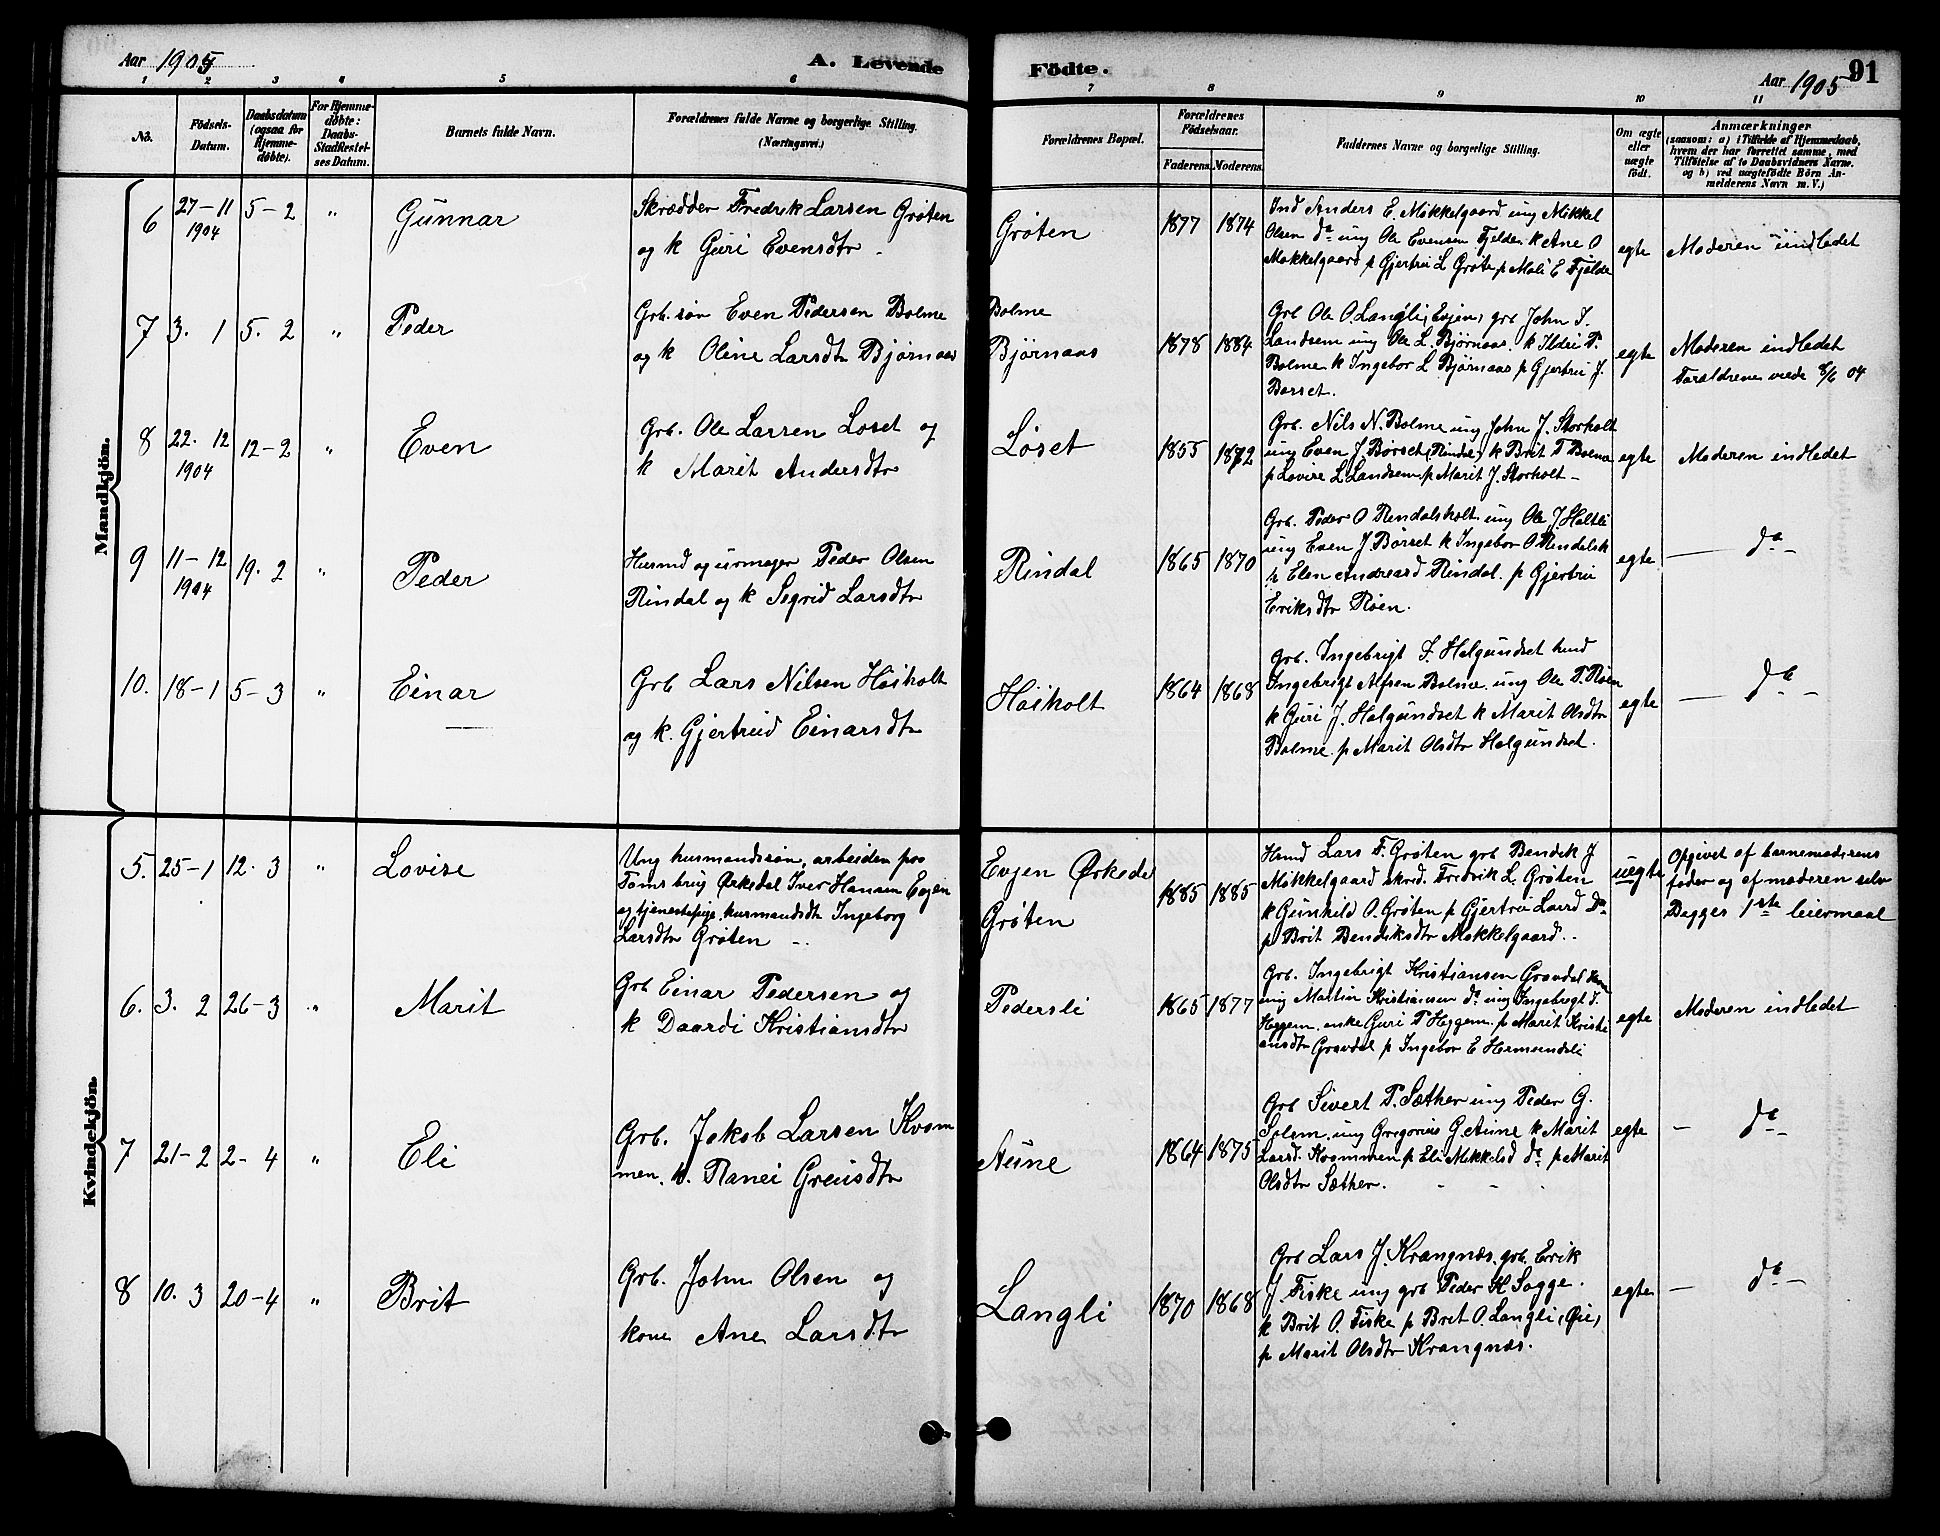 Aar 1905
A. Levende
Födte.
Aar 1905
91
1 2 3 4 5 6 7 8 9 10 11
No.
Födsels-
Datum.
Daabsdatum
(ogsaa for
Hjemme-
døbte).
For Hjemme-
døbte:
Daabs-
Stadfæstel-
ses Datum.
Barnets fulde Navn.
Forældrenes fulde Navne og borgerlige Stilling.
(Næringsvei.)
Forældrenes Bopæl.
Forældrenes
Födselsaar.
Faderens. Moderens.
Faddernes Navne og borgerlige Stilling.
Om ægte
eller
uægte
födt.
Anmærkninger
(saasom: a) i Tilfælde af Hjemmedaab,
hvem der har forrettet samme, med
Tilföielse af to Daabsvidners Navne,
og b) ved uægtefödte Börn An-
melderens Navn m. V.)
Mandkjön.
6 27-11 1904 5-2 " Gunnar
Skrædder Fredrik Larsen Grøten
og k Guri Evensdtr
Grøten 1877 1874
Ind Anders E. Mokkelgaard ung Mikkel
Olsen do ung Ole Evensen Fjelde k Ane O
Mokkelgaard p Gjertru L Grøte p Mali E Fjelde
egte Moderen indledet
7 3. 1 5. 2 " Peder
Grb. søn Even Pedersen Bolme
og k Oline Larsdtr Bjørnaas
Bolme
Bjørnaas 1878 1884
Grb Ole O. Langli, Evjen, grb John I.
Landsem ung Ole L. Bjørnaas. k Ildri P.
Bolme k Ingebor L Bjørnaas p Gjertru J.
Børset.
egte Moderen indledet
Foraldrene viede 8/6 04
8 22. 12 1904 12-2 " Even
Grb. Ole Larsen Løset og
k Marit Andersdtr
Løset 1855 1872
Grb. Nils N. Bolme ung John J. Storholt
ung Even J. Børset, Rindal, k Brit T Bolme
p Lovise L. Landsem p Marit J. Storholt -
egte Moderen indledet
9 11-12 1904 19. 2 " Peder
Husmd og urmager Peder Olsen
Rindal og k Sigrid Larsdtr
Rindal 1865 1870
Grb. Peder O Rindalsholt ung Ole J. Holtli
ung Even J. Børset k Ingebor O Rindalsh
p Elen Andreasd Rindal. p Gjertru
Eriksdtr Røen.
egte - do -
10. 18-1 5-3 " Einar
Grb Lars Nilsen Høiholt
og k. Gjertrud Einarsdtr
Høiholt 1864 1868
Grb. Ingebrigt I. Halgundset husd
Ingebrigt Alfsen Bolme ung Ole P. Røen
k Guri J. Halgundset k Marit Olsdtr
Bolme p Marit Olsdtr Halgundset.
egte - do -
Kvindekjön.
5. 25-1 12. 3 " Lovise
Ung husmandssøn, arbeiden paa
Toms brug Ørkedal Iver Hansen Evjen
og tjenestepige, husmandsdt Ingeborg
Larsdtr Grøten -
Evjen Ørkeda
Grøten 1885 1885
Husmd Lars F. Grøten grb Bendik J
Mokkelgaard skrd. Fredrik L. Grøten
k Gunhild O. Grøten p Gjertru Larsd do
p Brit Bendiksdtr Mokkelgaard.
uegte Opgivet af barnemoderens
fader og af moderen selv
Begges 1ste leiermaal
6. 3. 2 26-3 " Marit
Grb Einar Pedersen og
k Daardi Kristiansdtr
Pedersli 1865 1877
Grb. Ingebrigt Kristiansen Gravdal
ung Martin Kristiansen do ung Ingebrigt I.
Heggem, enke Guri T Heggem. p Marit Kristi
ansdtr Gravdal p Ingebor E Hermundsli
egte Moderen indledet
7 21-2 2-4 " Eli
Grb. Jakob Larsen Kvam
men, k. Ranei Greiisdtr
Aune 1864 1875
Grb Sivert P. Sæther ung Peder G.
Solem. ung Gregorius G. Aune k Marit
Larsd. Kvammen p Eli Mikkelsd do p Marit
Olsdtr Sæther.
egte - do -
8 10. 3 20-4 " Brit
Grb. John Olsen og
kone Ane Larsdtr
Langli 1870 1868
Grb Lars J. Krangnæs, grb. Erik
J. Fiske ung grb Peder H Sogge.
k Brit O. Fiske p Bret O. Langli, Øie,
p Marit Olsdtr Krangnæs.
egte - do -